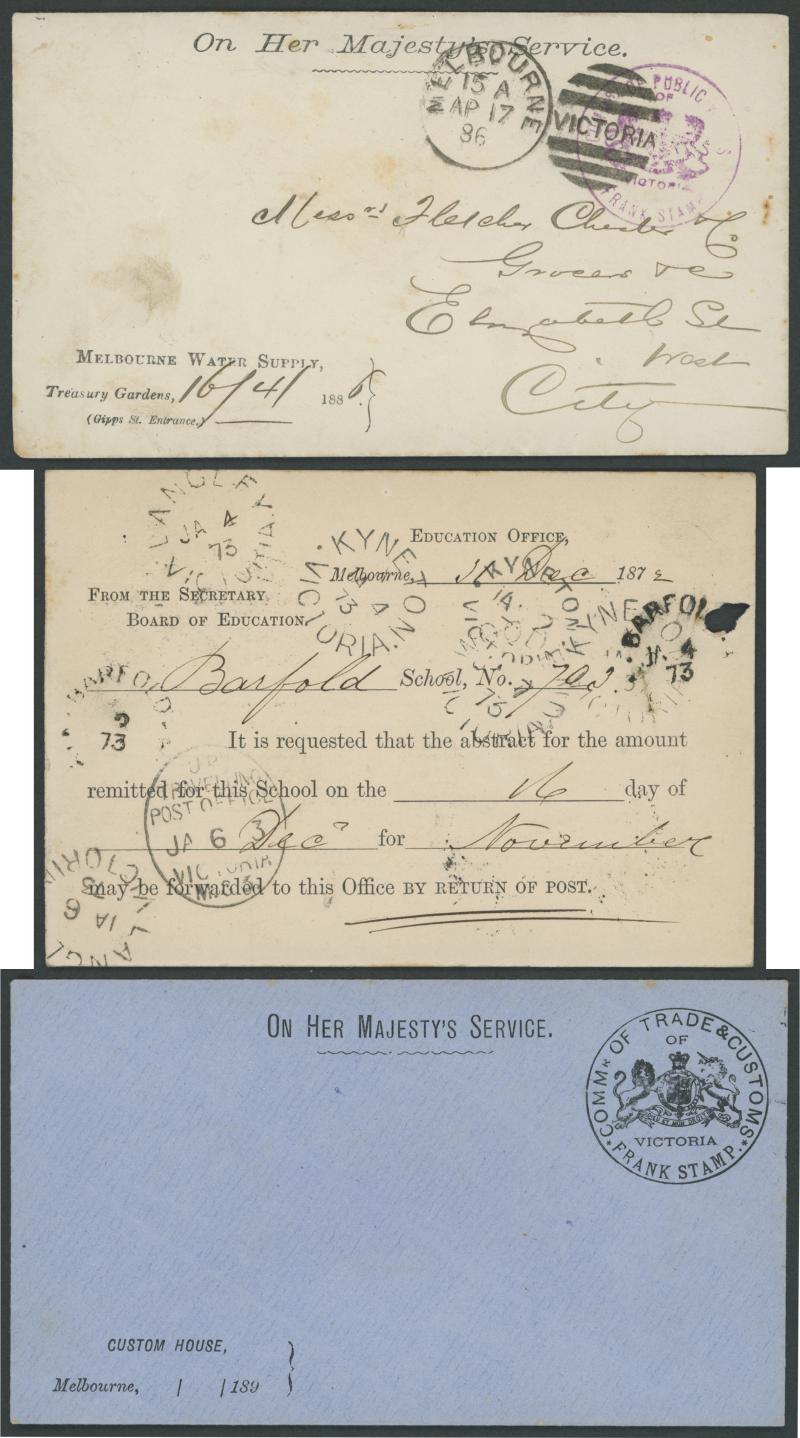 On Her Majesty's Service.
MELBOURNE
15 A
AP 17
86
VICTORIA
PUBLIC
OF
VICTORIA
FRANK STAMP
Messrs Fletcher Chester & Co
Grocers &c
Elizabeth St
West
City
MELBOURNE WATER SUPPLY,
Treasury Gardens, 16/4/ 1886
(Gipps St. Entrance.)
LANGLEY
JA 4
73
VICTORIA
KYNETON
4
73
VICTORIA
EDUCATION OFFICE,
Melbourne, 16 Dec 1872
FROM THE SECRETARY
BOARD OF EDUCATION.
KYNETON
BARFOLD
JA 4
73
Barfold School, No.
BARFO
73
It is requested that the abstract for the amount
remitted for this School on the 16 day of
Decr for November
may be forwarded to this Office BY RETURN OF POST.
UP
TRAVELLING
POST OFFICE
JA 6 3
VICTORIA
No 3
LANGL
JA 6
ON HER MAJESTY'S SERVICE.
COMMR OF TRADE & CUSTOMS
OF
VICTORIA
FRANK STAMP.
CUSTOM HOUSE,
Melbourne, / /189